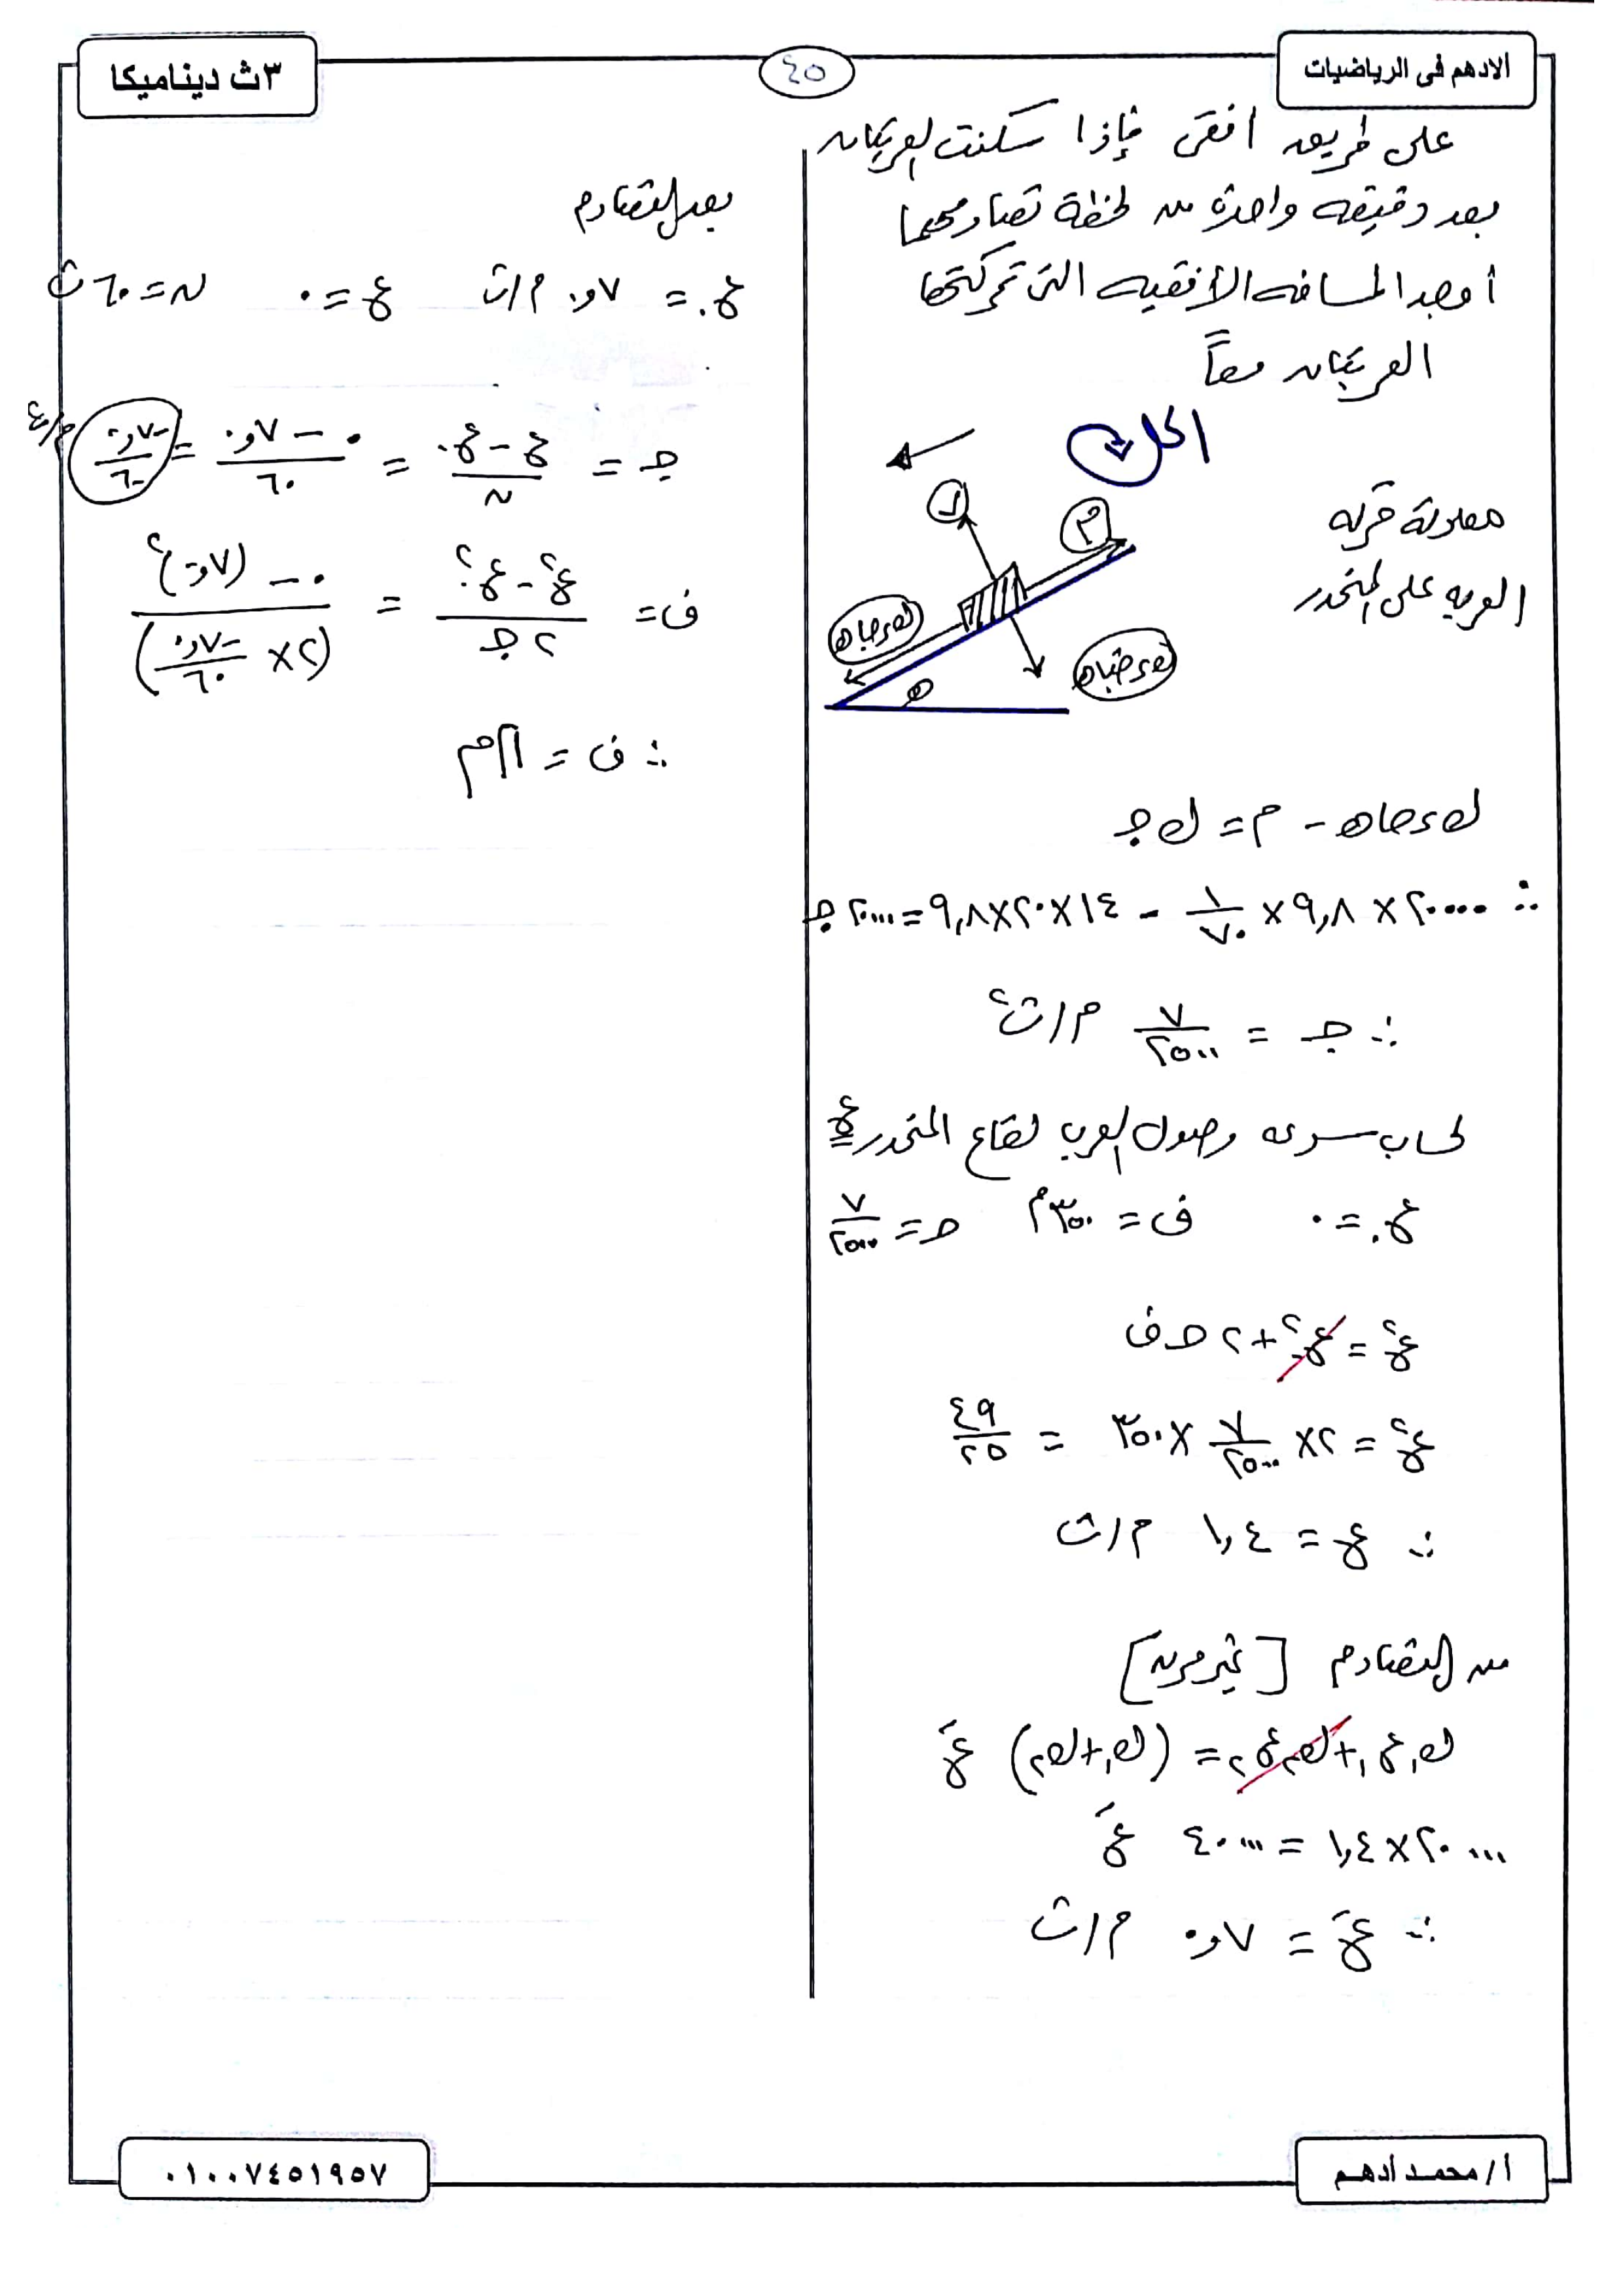 الادهم فى الرياضيات
٤٥
٣ث ديناميكا
على طريق افقى فإذا سكنت العربتان
بعد دقيقه واحدة من لحظة تصادمهما
أوجد المسافه الأفقيه التى تحركتها
العربتان معاً
الحل
معادلة حركة
العربه على المنحدر
ر
م
ك ء جا ه
ك ء جتا ه
ه
ك ء جا ه - م = ك جـ
∴ ٢٠٠٠٠ × ٩,٨ × ١/٧٠ - ١٤ × ٢٠ × ٩,٨ = ٢٠٠٠٠ جـ
∴ جـ = ٧/٢٥٠٠ م/ث٢
لحساب سرعه وصول العربه لقاع المنحدر ع
ع٠ = ٠ ف = ٣٥٠ م جـ = ٧/٢٥٠٠
ع٢ = ع٠٢ + ٢ جـ ف
ع٢ = ٢ × ٧/٢٥٠٠ × ٣٥٠ = ٤٩/٢٥
∴ ع = ١,٤ م/ث
من التصادم [غير مرن]
ك١ ع١ + ك٢ ع٢ = (ك١ + ك٢) عَ
٢٠٠٠٠ × ١,٤ = ٤٠٠٠٠ عَ
∴ عَ = ٠,٧ م/ث
بعد التصادم
ع٠ = ٠,٧ م/ث ع = ٠ ن = ٦٠ ث
جـ = (ع - ع٠)/ن = (٠ - ٠,٧)/٦٠ = -٠,٧/٦٠ م/ث٢
ف = (ع٢ - ع٠٢)/٢جـ = (٠ - (٠,٧)٢)/(٢ × -٠,٧/٦٠)
∴ ف = ٢١ م
أ / محمد أدهم
٠١٠٠٧٤٥١٩٥٧